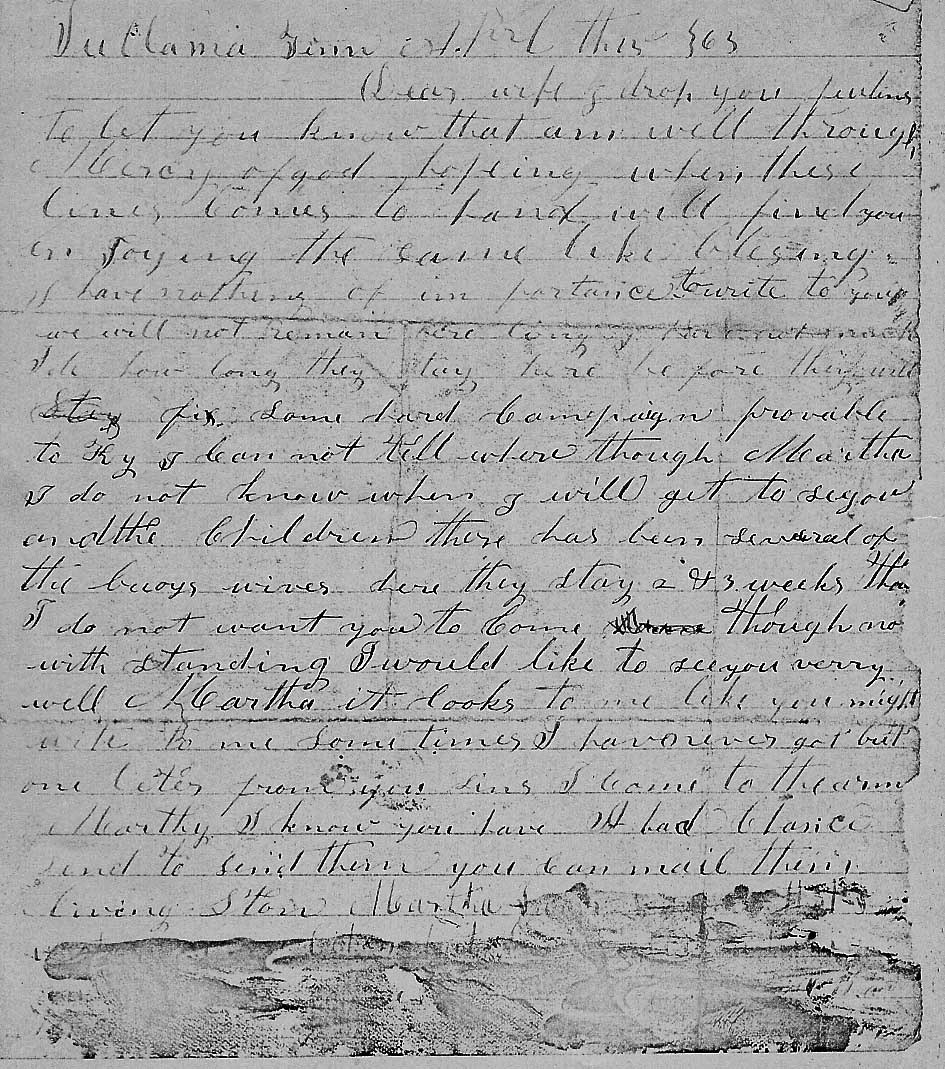 Tullama Tenn 863
Dear wife I drop you
to let you know that am well through
Mercy of god hopeing when these
lines Comes to hand will find you
en Joying the same like blesing
I have nothing of im portance to write to you
we will not reman here long
how long they stay here before they will
Stey fix some hard Campaign provable
to Ky I Can not tell where though Martha
I do not know when I will get to se you
and the Children there has been several of
the buoys wives here they stay 2 & 3 weeks tho
I do not want you to Come though no
with standing I would like to see you verry
well Martha it looks to me like you might
write to me some times I have never got but
one leter from you sins I Come to the arm
Marthy I know you have had Chance
send to send them you Can mail them
living Ston Martha